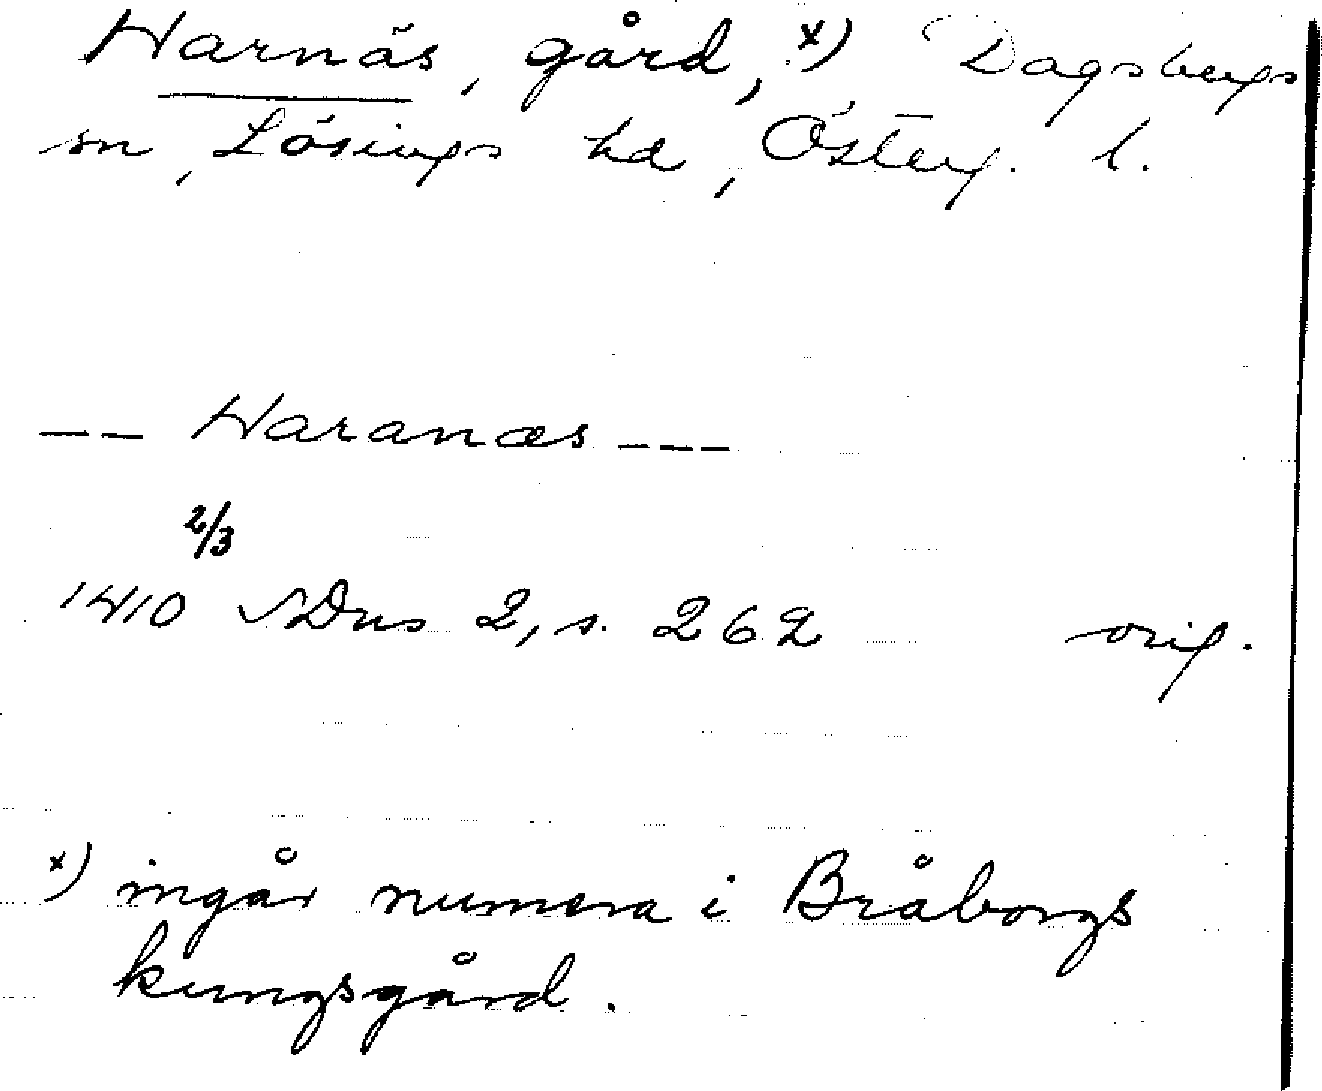 Harnäs, gård, x) Dagsbergs
sn, Lösings hd, Österg. l.
-- Haranæs ---
2/3
1410 SDns 2, s. 262 orig.
x) ingår numera i Bråborgs
kungsgård.